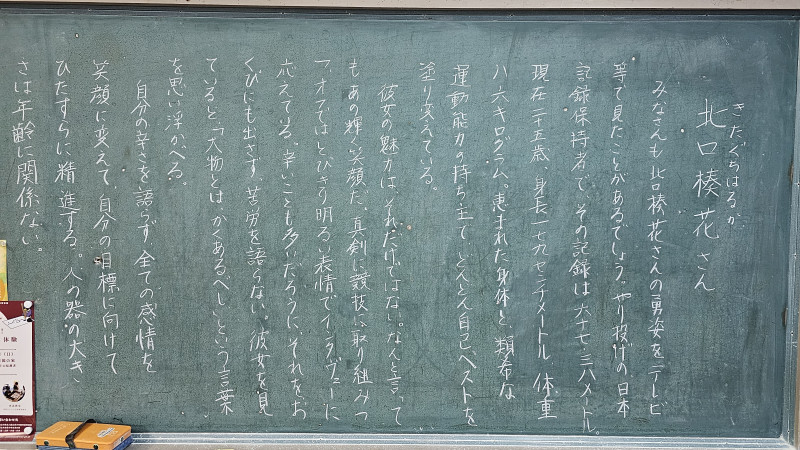 きたぐちはるか
北口榛花さん
みなさんも北口榛花さんの勇姿をテレビ
等で見たことがあるでしょう。やり投げの日本
記録保持者で、その記録は六十七・三八メートル。
現在二十五歳、身長一七九センチメートル、体重
八六キログラム。恵まれた身体と、類希な
運動能力の持ち主で、どんどん自己ベストを
塗り変えている。
彼女の魅力は、それだけではない。なんと言って
もあの輝く笑顔だ。真剣に競技に取り組みつつ
オフではとびきり明るい表情でインタヴューに
応えている。辛いことも多いだろうに、それをお
くびにも出さず、苦労を語らない。彼女を見
ていると、「大物とはかくあるべし」という言葉
を思い浮かべる。
自分の辛さを語らず、全ての感情を
笑顔に変えて、自分の目標に向けて
ひたすらに精進する。人の器の大き
さは年齢に関係ない。
体験